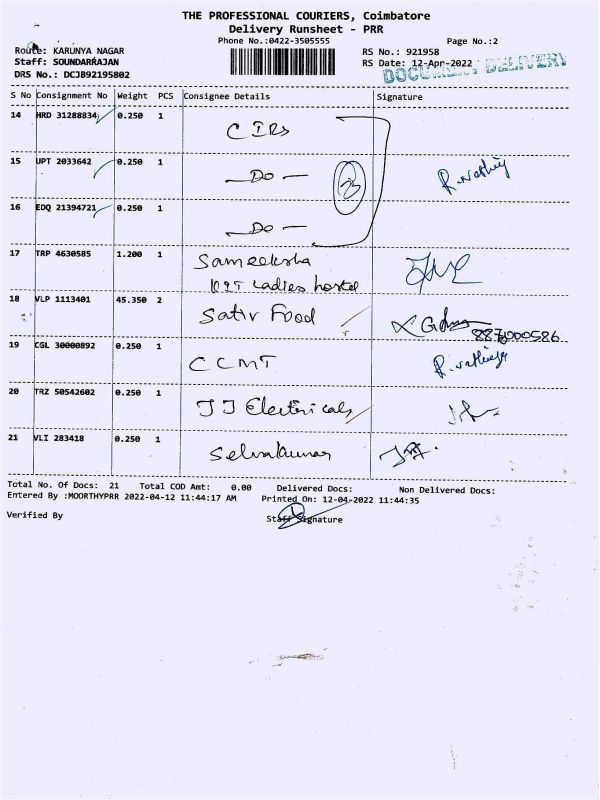 THE PROFESSIONAL COURIERS, Coimbatore
Delivery Runsheet - PRR
Phone No.:0422-3505555
Page No.:2
Route: KARUNYA NAGAR
RS No.: 921958
Staff: SOUNDARRAJAN
RS Date: 12-Apr-2022
DOCUMENT DELIVERY
DRS No.: DCJB92195802
S No Consignment No Weight PCS Consignee Details Signature
14 HRD 31288834 0.250 1 CIRs
15 UPT 2033642 0.250 1 —Do— R.
16 EDQ 21394721 0.250 1 —Do—
17 TRP 4630585 1.200 1 Sameeksha
Ladies hostel
18 VLP 1113401 45.350 2 Sativ Food
8871000586
19 CGL 30000892 0.250 1 CCMT R.
20 TRZ 50542602 0.250 1 JJ Electricals
21 VLI 283418 0.250 1 Selvakumar
Total No. Of Docs: 21 Total COD Amt: 0.00 Delivered Docs: Non Delivered Docs:
Entered By :MOORTHYPRR 2022-04-12 11:44:17 AM Printed On: 12-04-2022 11:44:35
Verified By Staff Signature